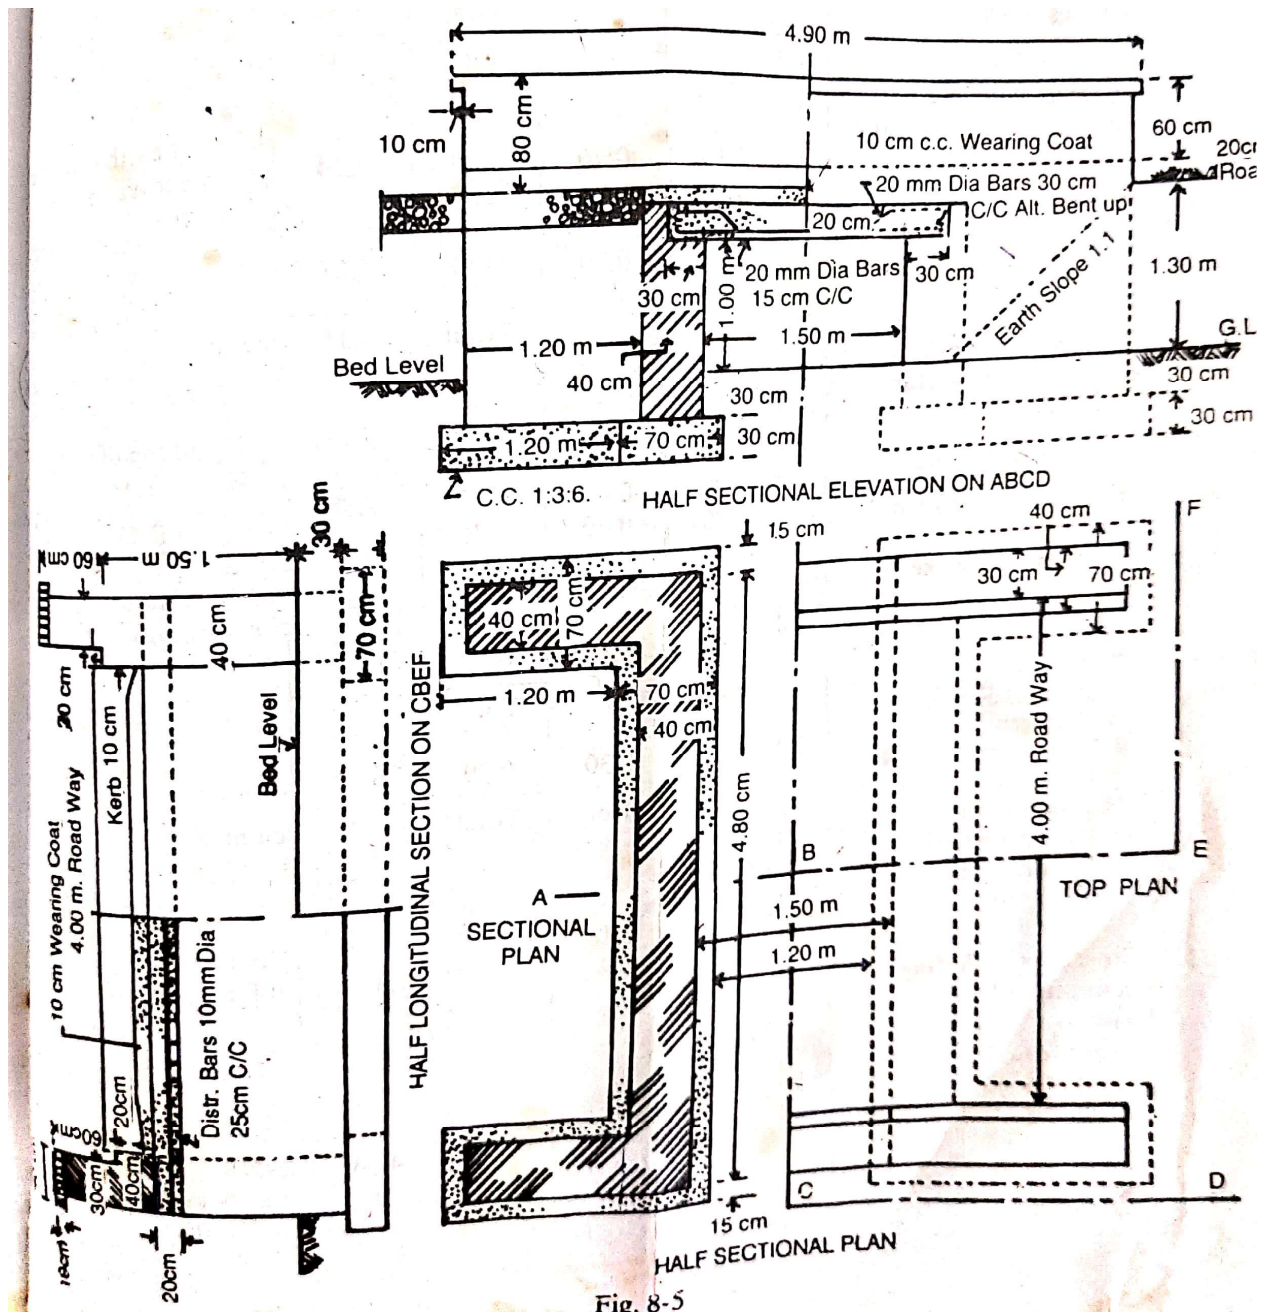 4.90 m
10 cm
80 cm
60 cm
10 cm c.c. Wearing Coat
20 mm Dia Bars 30 cm
C/C Alt. Bent up
20 cm
20 mm Dia Bars
15 cm C/C
30 cm
30 cm
1.00 m
1.30 m
Earth Slope 1.1
1.20 m
1.50 m
G.L
Bed Level
40 cm
30 cm
30 cm
1.20 m
70 cm
30 cm
30 cm
C.C. 1:3:6.
HALF SECTIONAL ELEVATION ON ABCD
60 cm
1.50 m
30 cm
40 cm
70 cm
20 cm
Kerb 10 cm
Bed Level
10 cm Wearing Coat
4.00 m. Road Way
Distr. Bars 10mm Dia
25cm C/C
60cm
20cm
30cm
40cm
20cm
HALF LONGITUDINAL SECTION ON CBEF
15 cm
40 cm
70 cm
1.20 m
70 cm
40 cm
4.80 cm
A
SECTIONAL
PLAN
15 cm
HALF SECTIONAL PLAN
40 cm
F
30 cm
70 cm
4.00 m. Road Way
B
E
TOP PLAN
1.50 m
1.20 m
C
D
Fig. 8-5